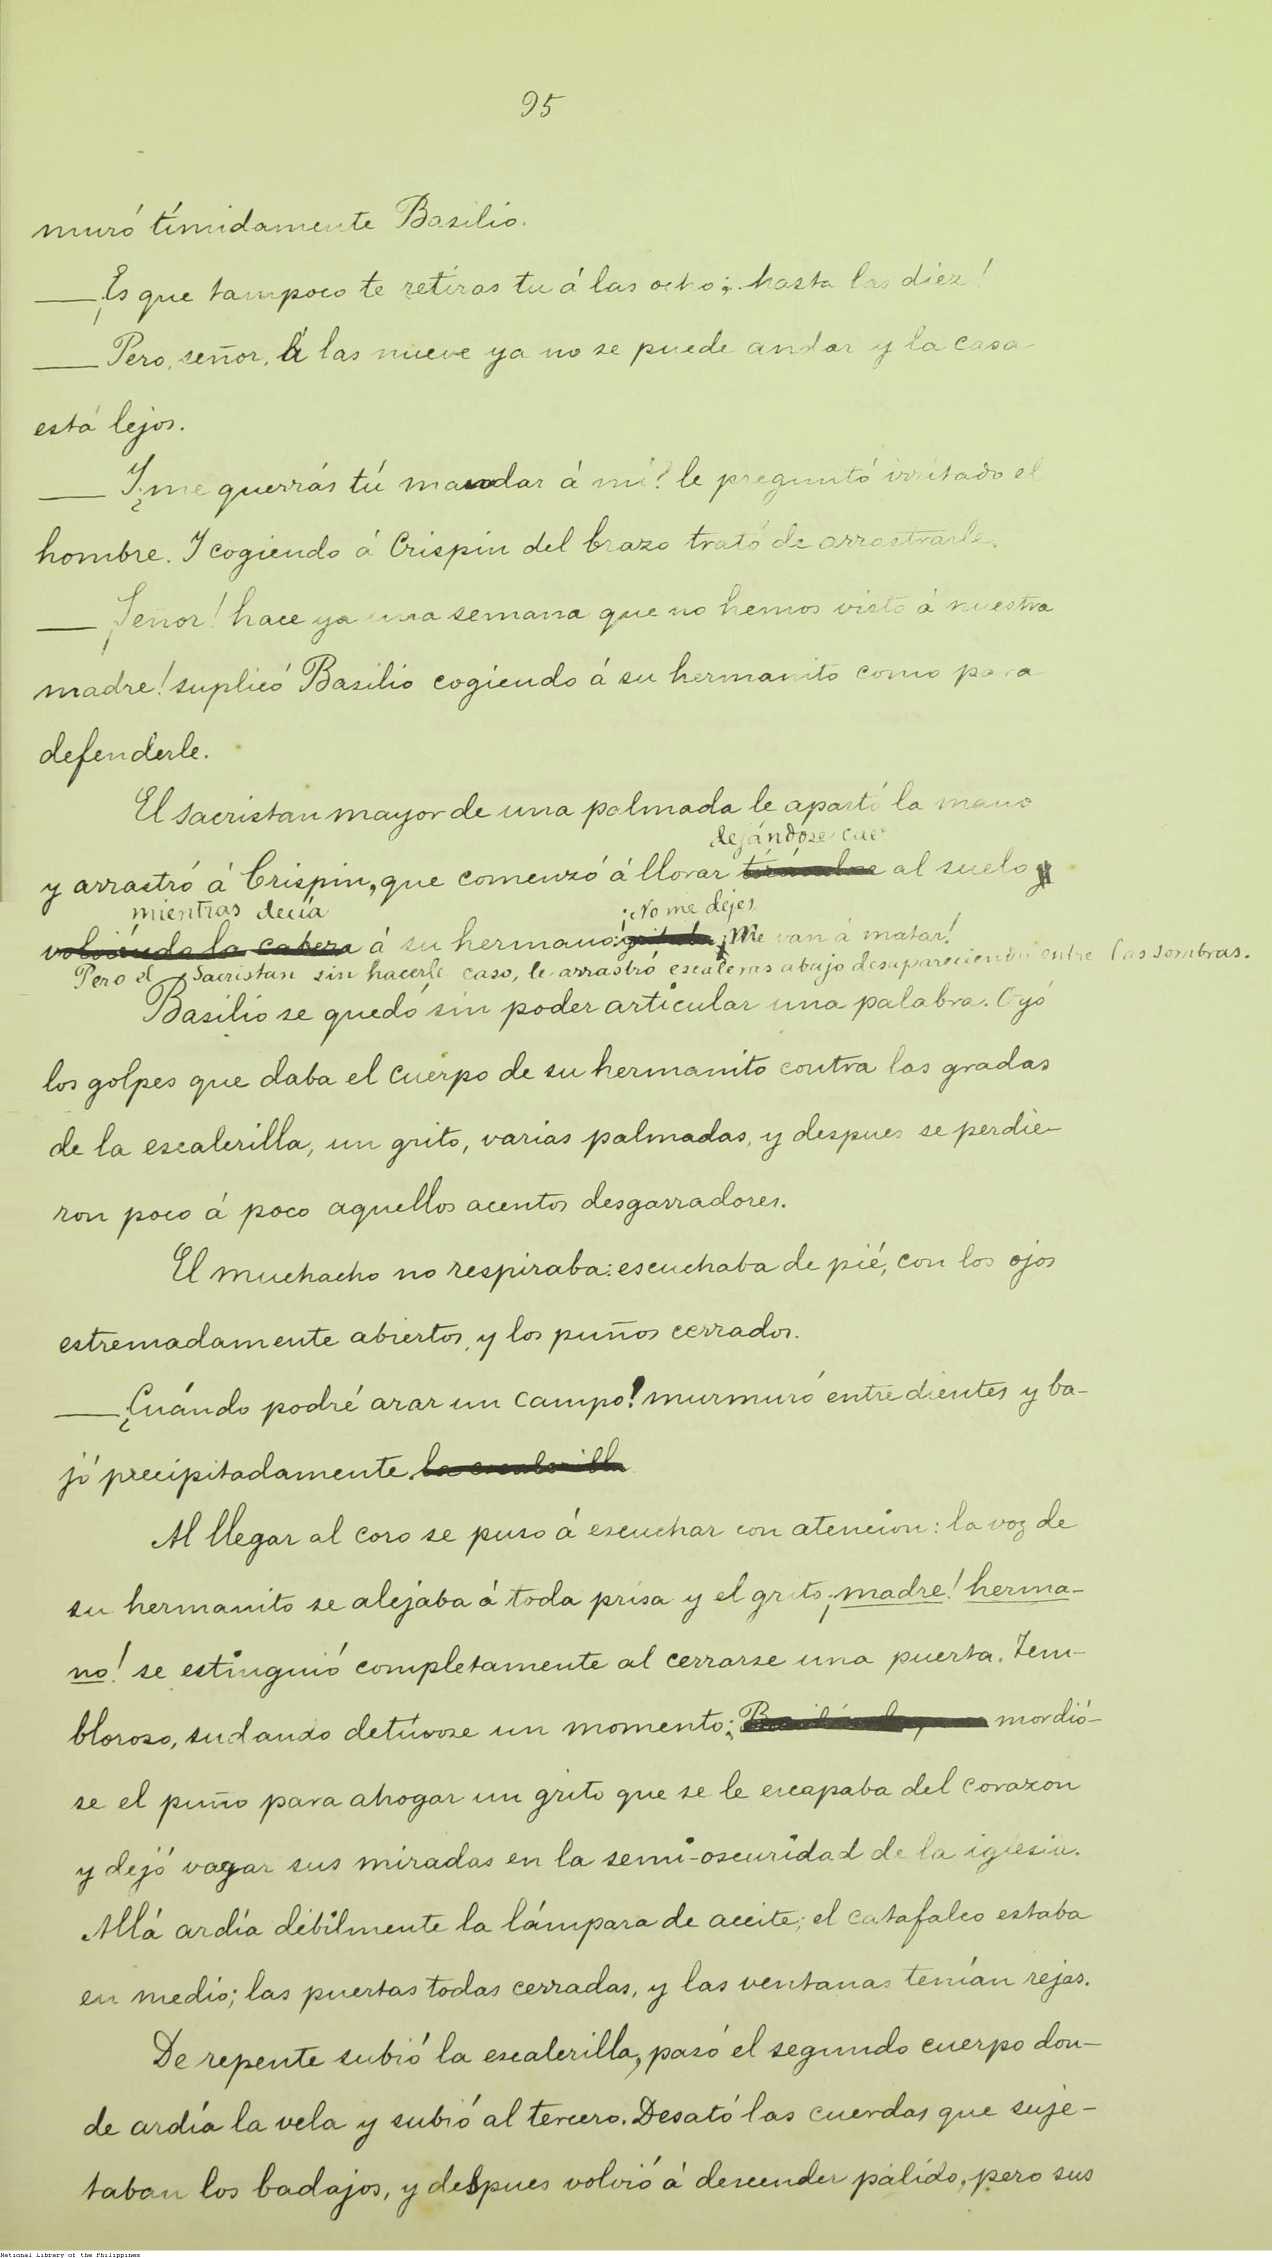 95
muró tímidamente Basilio.
— ¡Es que tampoco te retiras tu á las ocho; hasta las diez!
— Pero, señor, á las nueve ya no se puede andar y la casa
está lejos.
— Y ¿me querrás tú mandar á mí? le preguntó irritado el
hombre. Y cogiendo á Crispin del brazo trató de arrastrarle.
— ¡Señor! hace ya una semana que no hemos visto á nuestra
madre! suplicó Basilio cogiendo á su hermanito como para
defenderle.
El sacristan mayor de una palmada le apartó la mano
dejándose caer
y arrastró á Crispin, que comenzó á llorar al suelo y
mientras decía ¡No me dejes,
volviendo la cabeza á su hermano: ¡Me van á matar!
Pero el Sacristan sin hacerle caso, le arrastró escaleras abajo desapareciendo entre las sombras.
Basilio se quedó sin poder articular una palabra. Oyó
los golpes que daba el cuerpo de su hermanito contra las gradas
de la escalerilla, un grito, varias palmadas, y despues se perdie-
ron poco á poco aquellos acentos desgarradores.
El muchacho no respiraba: escuchaba de pié, con los ojos
estremadamente abiertos, y los puños cerrados.
— ¿Cuándo podré arar un campo? murmuró entre dientes y ba-
jó precipitadamente. la escalerilla
Al llegar al coro se puso á escuchar con atencion: la voz de
su hermanito se alejaba á toda prisa y el grito ¡madre! herma-
no! se estinguió completamente al cerrarse una puerta. Tem-
bloroso, sudando detúvose un momento; mordió-
se el puño para ahogar un grito que se le escapaba del corazon
y dejó vagar sus miradas en la semi-oscuridad de la iglesia.
Allá ardía débilmente la lámpara de aceite; el catafalco estaba
en medio; las puertas todas cerradas, y las ventanas tenían rejas.
De repente subió la escalerilla, pasó el segundo cuerpo don-
de ardía la vela y subió al tercero. Desató las cuerdas que suje-
taban los badajos, y despues volvió á descender pálido, pero sus
National Library of the Philippines